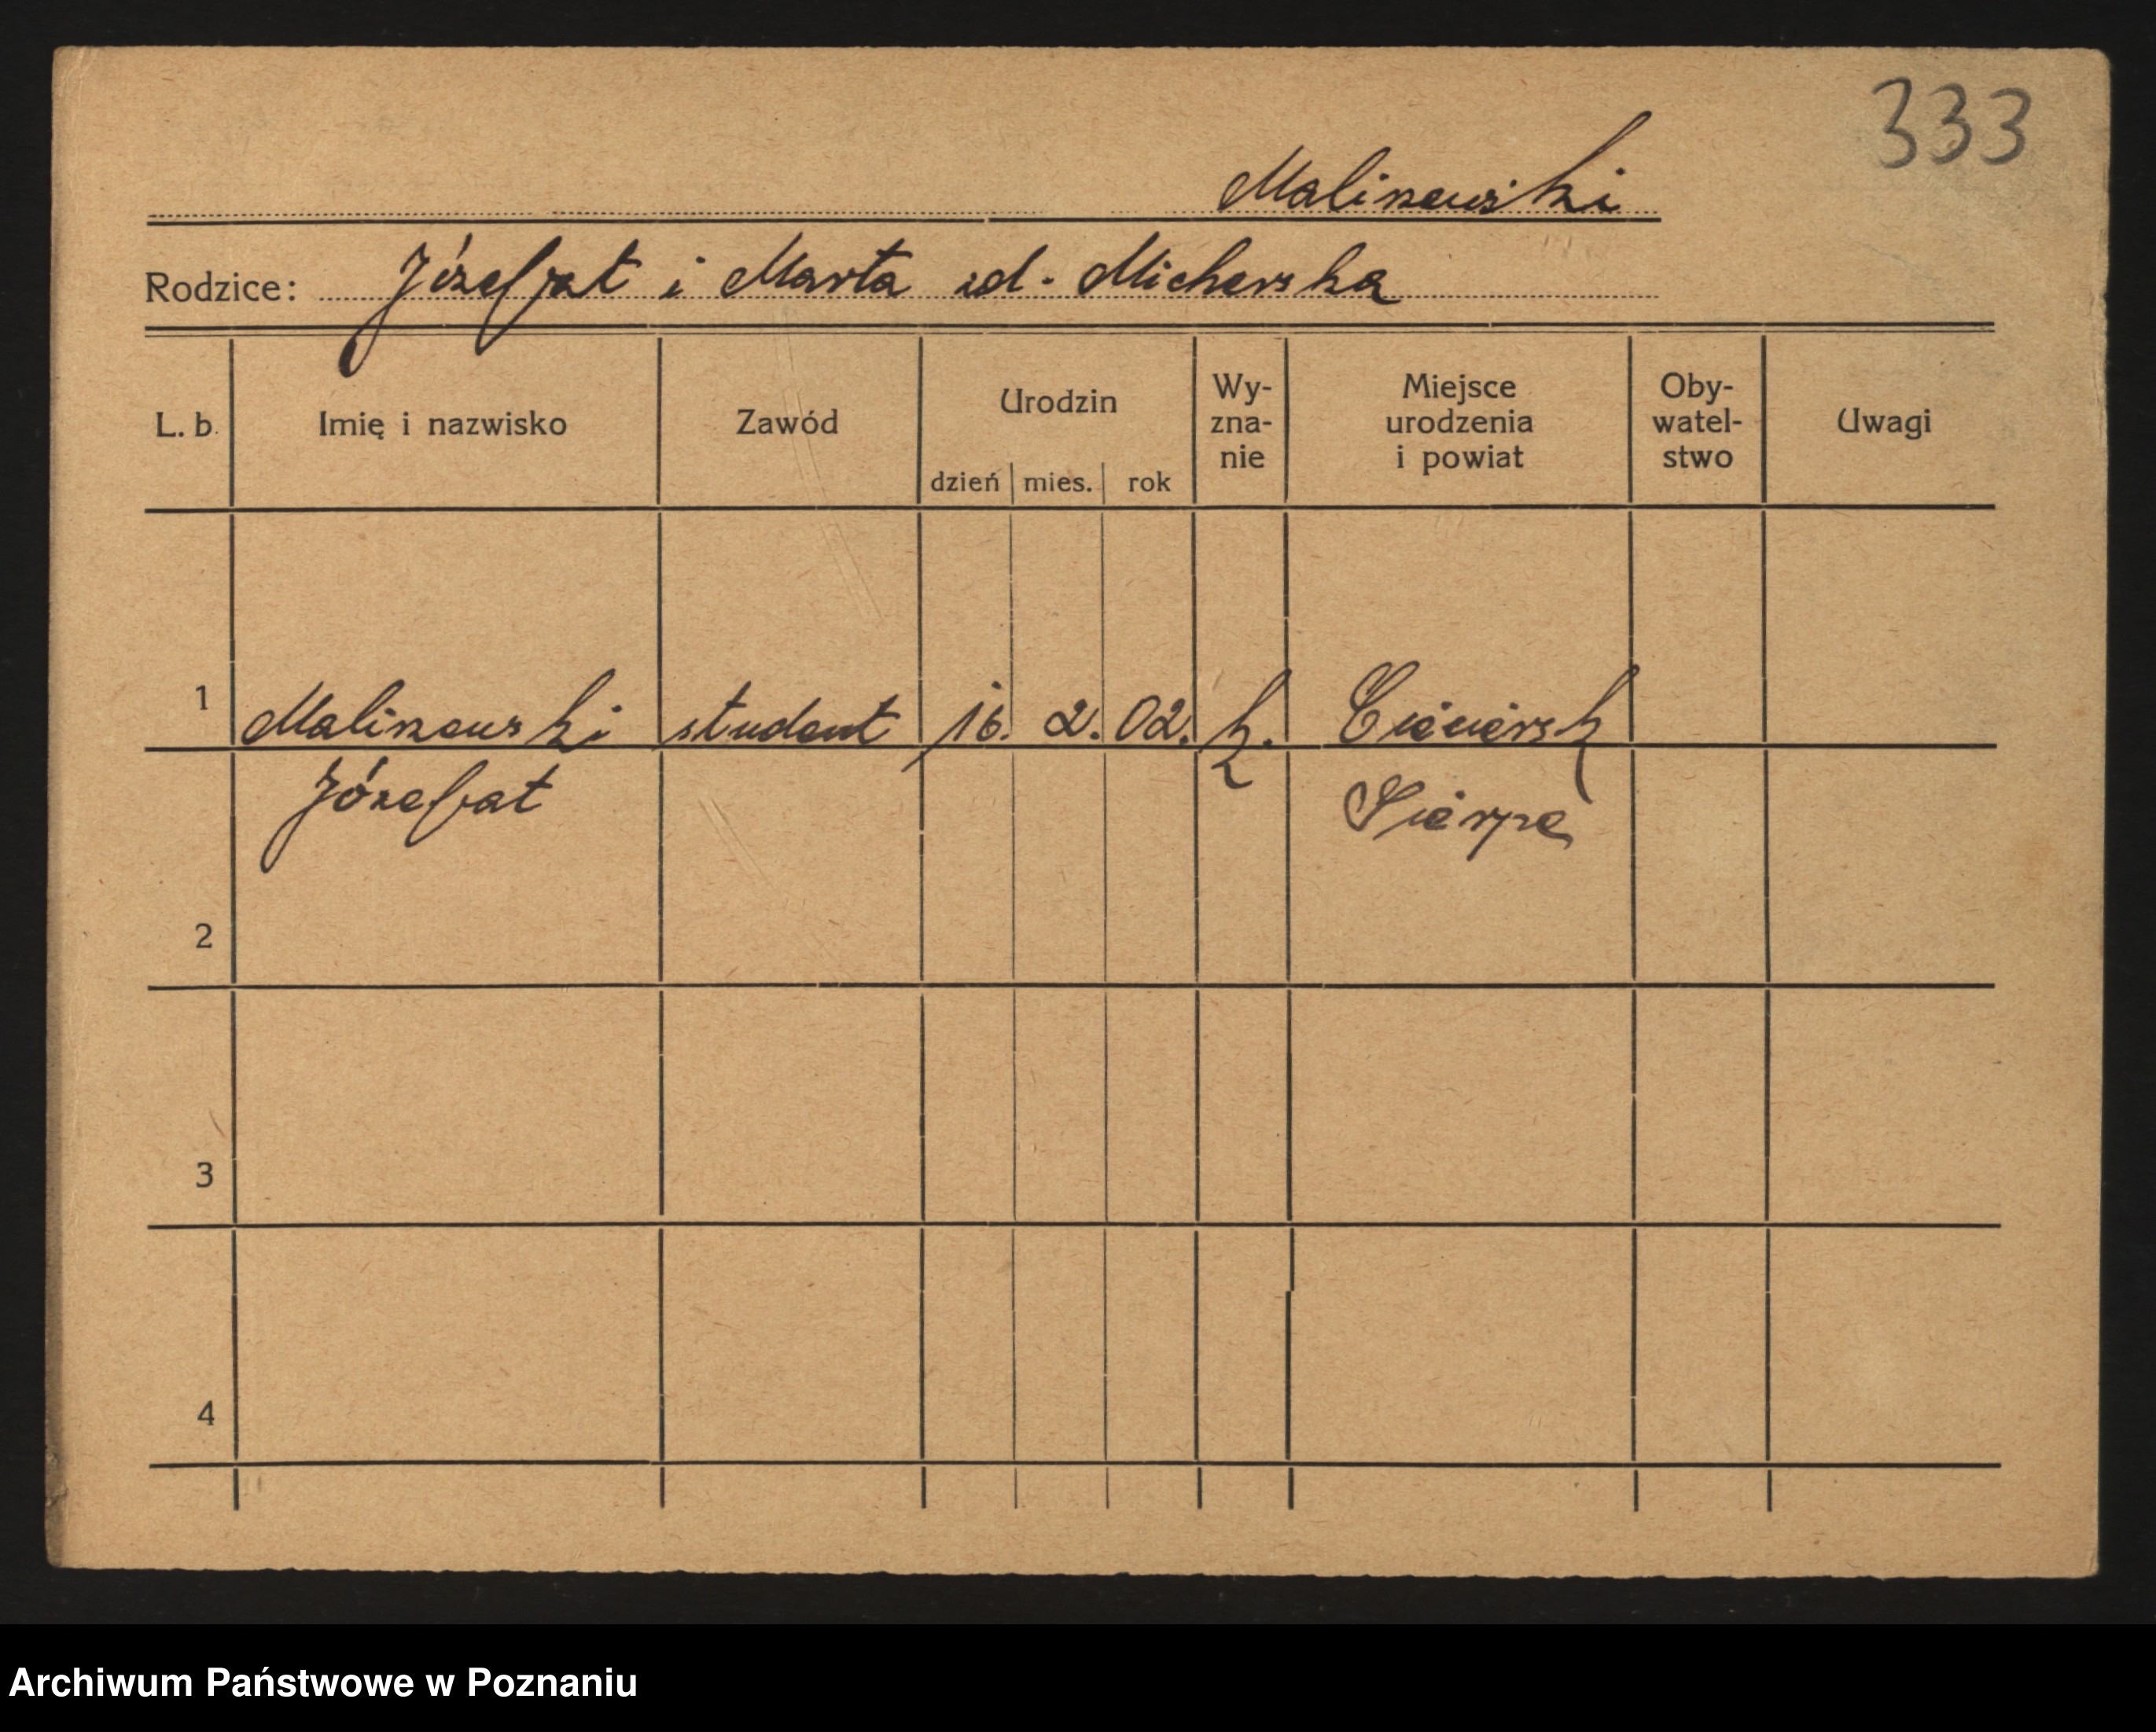 333
Malinowski
Rodzice: Józefat i Marta zd. Micherska
L. b. Imię i nazwisko Zawód Urodzin dzień mies. rok Wy-zna-nie Miejsce urodzenia i powiat Oby-watel-stwo Uwagi
1 Malinowski student 16. 2. 02. k.
Józefat Sierpc
2
3
4
Archiwum Państwowe w Poznaniu